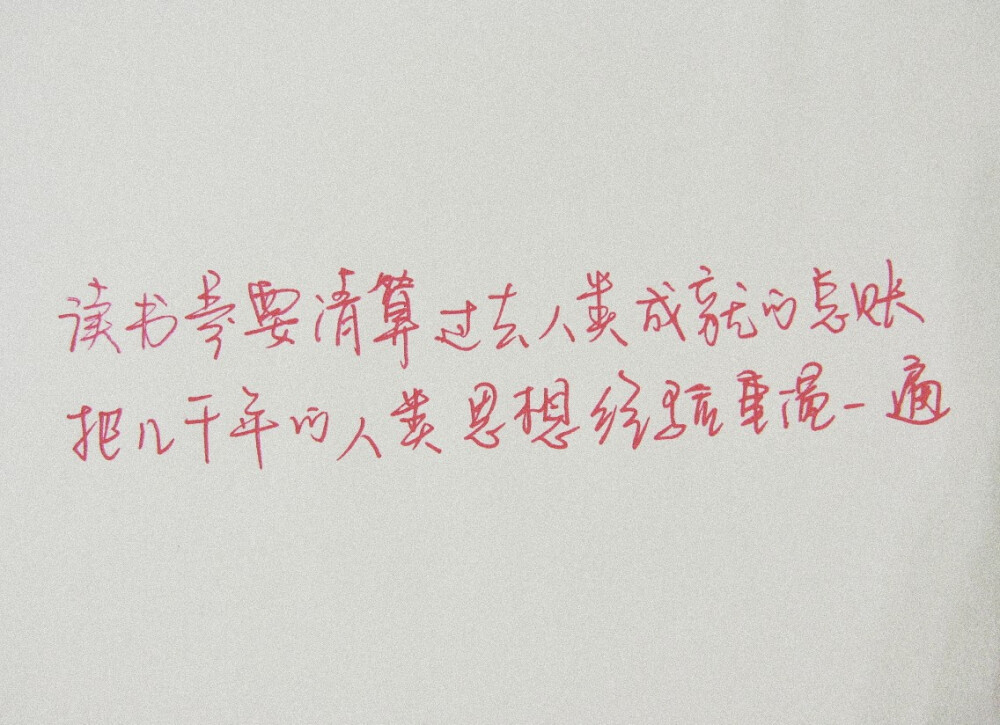 读书是要清算过去人类成就的总账
把几千年的人类思想经验重温一遍